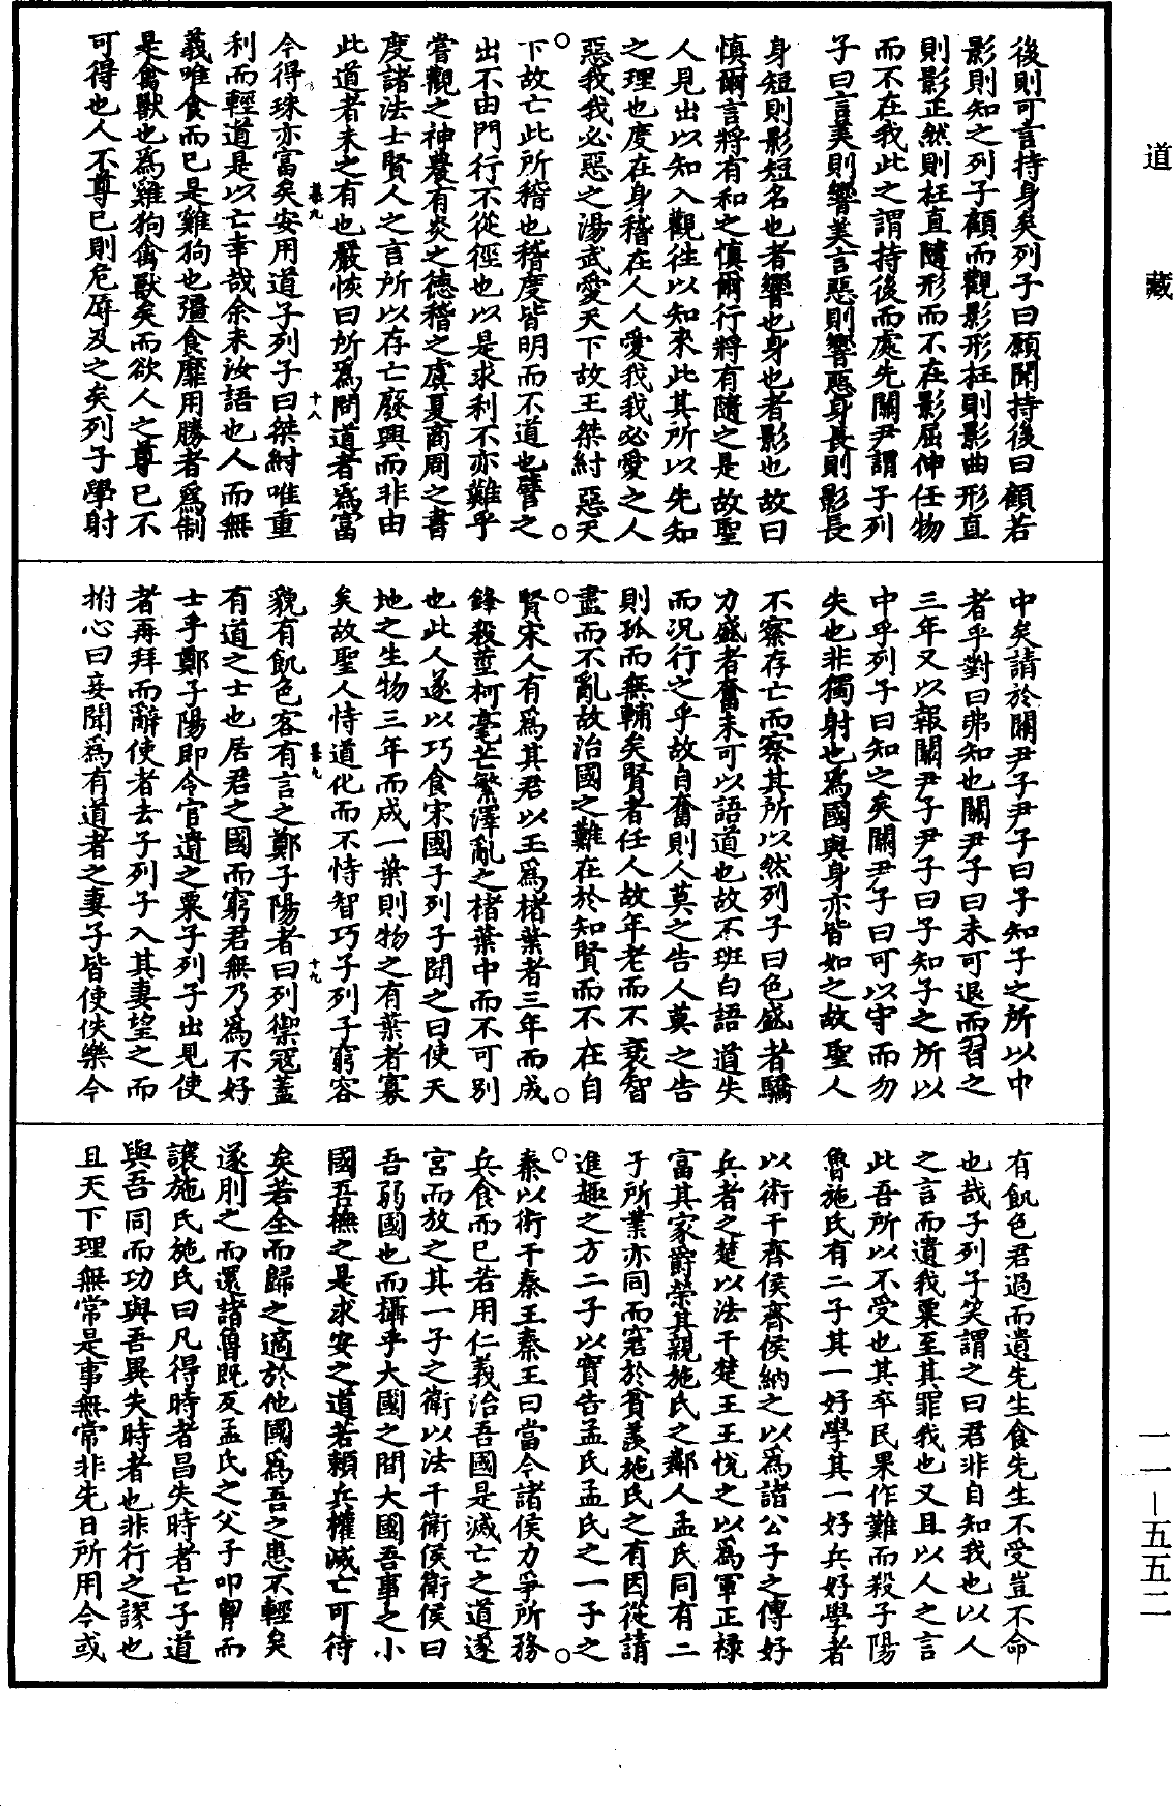 道藏
後則可言持身矣列子曰願聞持後曰顧若
影則知之列子顧而觀影形枉則影曲形直
則影正然則枉直隨形而不在影屈伸任物
而不在我此之謂持後而處先關尹謂子列
子曰言美則響美言惡則響惡身長則影長
身短則影短名也者響也身也者影也故曰
慎爾言將有和之慎爾行將有隨之是故聖
人見出以知入觀往以知來此其所以先知
之理也度在身稽在人人愛我我必愛之人
惡我我必惡之湯武愛天下故王桀紂惡天
下故亡此所稽也稽度皆明而不道也譬之
出不由門行不從徑也以是求利不亦難乎
嘗觀之神農有炎之德稽之虞夏商周之書
度諸法士賢人之言所以存亡廢興而非由
此道者未之有也嚴恢曰所為問道者為富
慕九 十八
今得珠亦富矣安用道子列子曰桀紂唯重
利而輕道是以亡幸哉余未汝語也人而無
義唯食而已是雞狗也彊食靡用勝者為制
是禽獸也為雞狗禽獸矣而欲人之尊已不
可得也人不尊已則危辱及之矣列子學射
中矣請於關尹子尹子曰子知子之所以中
者乎對曰弗知也關尹子曰未可退而習之
三年又以報關尹子尹子曰子知子之所以
中乎列子曰知之矣關尹子曰可以守而勿
失也非獨射也為國與身亦皆如之故聖人
不察存亡而察其所以然列子曰色盛者驕
力盛者奮未可以語道也故不班白語道失
而況行之乎故自奮則人莫之告人莫之告
則孤而無輔矣賢者任人故年老而不衰智
盡而不亂故治國之難在於知賢而不在自
賢宋人有為其君以玉為楮葉者三年而成
鋒殺莖柯毫芒繁澤亂之楮葉中而不可別
也此人遂以巧食宋國子列子聞之曰使天
地之生物三年而成一葉則物之有葉者寡
矣故聖人恃道化而不恃智巧子列子窮容
慕九 十九
貌有飢色客有言之鄭子陽者曰列禦寇蓋
有道之士也居君之國而窮君無乃為不好
士乎鄭子陽即令官遺之粟子列子出見使
者再拜而辭使者去子列子入其妻望之而
拊心曰妾聞為有道者之妻子皆使佚樂今
有飢色君過而遺先生食先生不受豈不命
也哉子列子笑謂之曰君非自知我也以人
之言而遺我粟至其罪我也又且以人之言
此吾所以不受也其卒民果作難而殺子陽
魯施氏有二子其一好學其一好兵好學者
以術干齊侯齊侯納之以為諸公子之傅好
兵者之楚以法干楚王王悅之以為軍正祿
富其家爵榮其親施氏之鄰人孟氏同有二
子所業亦同而窘於貧羨施氏之有因從請
進趣之方二子以實告孟氏孟氏之一子之
秦以術干秦王秦王曰當今諸侯力爭所務
兵食而已若用仁義治吾國是滅亡之道遂
宮而放之其一子之衛以法干衛侯衛侯曰
吾弱國也而攝乎大國之間大國吾事之小
國吾撫之是求安之道若賴兵權滅亡可待
矣若全而歸之適於他國為吾之患不輕矣
遂刖之而還諸魯既反孟氏之父子叩胷而
讓施氏施氏曰凡得時者昌失時者亡子道
與吾同而功與吾異失時者也非行之謬也
且天下理無常是事無常非先日所用今或
一一－五五二